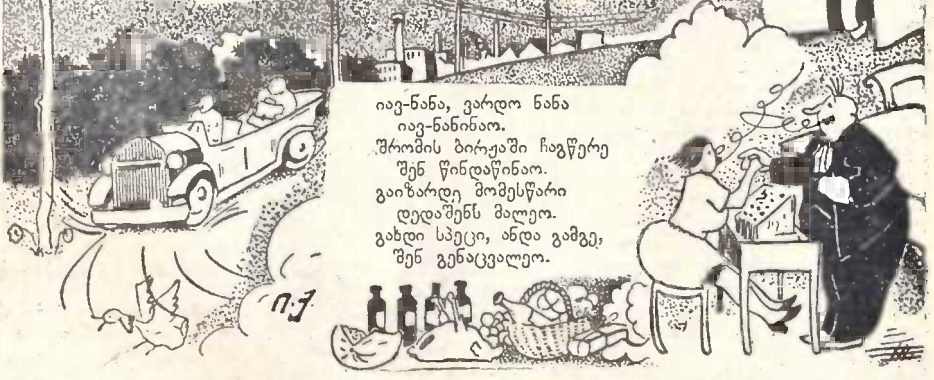 იავ-ნანა, ვარდო ნანა
იავ-ნანინაო.
შრომის ბირჟაში ჩაგწერე
შენ წინდაწინაო.
გაიზარდე მომესწარი
დედაშენს მალეო.
გახდი სპეცი, ანდა გამგე,
შენ გენაცვალეო.